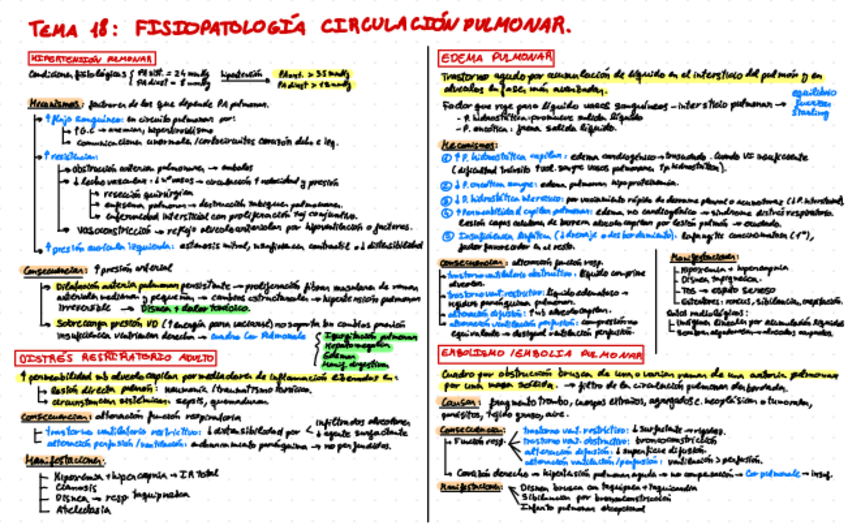 TEMA 18: FISIOPATOLOGÍA CIRCULACIÓN PULMONAR.
HIPERTENSIÓN PULMONAR
Condiciones fisiológicas PA sist. = 24 mmHg hipertensión PA sist. > 35 mmHg
PA diast = mmHg PA diast > mmHg
Mecanismos: factores de los que depende PA pulmonar.
↑ flujo sanguíneo: en circuito pulmonar por:
↑ G.C → anemias, hipertiroidismo
comunicaciones anormales / cortocircuitos corazón dcho e izq.
↑ resistencia:
obstrucción arterias pulmonares → embolos
↓ lecho vascular: ↓ nº vasos → circulación ↑ velocidad y presión
resección quirúrgica
enfisema pulmonar → destrucción tabiques pulmonares.
enfermedad intersticial con proliferación tej conjuntivo.
Vasoconstricción → reflejo alveolo arteriolar por hipoventilación o factores.
↑ presión aurícula izquierda: estenosis mitral, insuficiencia contráctil o ↓ distensibilidad
Consecuencias: ↑ presión arterial
Dilatación arteria pulmonar persistente → proliferación fibras musculares de ramas
arteriales medianas y pequeñas → cambios estructurales → hipertensión pulmonar
irreversible → Disnea + dolor torácico.
Sobrecarga presión VD (↑ energía para vaciarse) no soporta bien cambios presión
insuficiencia ventricular derecha → cuadro Cor Pulmonale
Ingurgitación pulmonar
Hepatomegalia
Edemas
Manif. digestivas
DISTRÉS RESPIRATORIO ADULTO
↑ permeabilidad mb alveolo capilar por mediadores de inflamación liberados en:
lesión directa pulmón: neumonía / traumatismo torácico.
circunstancias sistémicas: sepsis, quemaduras.
Consecuencias: alteración función respiratoria
trastorno ventilatorio restrictivo: ↓ distensibilidad por infiltrados alveolares
↓ agente surfactante
alteración perfusión / ventilación: parénquima → no perfundidos.
Manifestaciones:
Hipoxemia + hipercapnia → IR total
Cianosis
Disnea → resp taquipneica
Atelectasia
EDEMA PULMONAR
Trastorno agudo por acumulación de líquido en el intersticio del pulmón y en
alveolos en fases más avanzadas.
Factor que rige paso líquido vasos sanguíneos - intersticio pulmonar → equilibrio
fuerzas
Starling
- P. hidrostática: promueve salida líquido
- P. oncótica: frena salida líquido.
Mecanismos:
① ↑ P. hidrostática capilar: edema cardiogénico → trasudado. Cuando VI insuficiente
(dificultad tránsito ↑ vol. sangre vasos pulmonares, ↑ p. hidrostática).
② ↓ P. oncótica sangre: edema pulmonar hipoproteinemia.
③ ↓ P. hidrostática intersticio: por vaciamiento rápido de derrame pleural o neumotórax (↓ P. intersticial)
④ ↑ Permeabilidad capilar pulmonar: edema no cardiogénico → síndrome distrés respiratorio.
Lesión capas celulares de barrera alveolo capilar por lesión pulmón → exudado.
⑤ Insuficiencia linfática (↓ drenaje o desbordamiento): linfangitis carcinomatosa (1º),
factor favorecedor en el resto.
Consecuencias: alteración función resp.
trastorno ventilatorio obstructivo: líquido comprime
alveolos.
trastorno vent. restrictivo: líquido edematoso →
rigidez parénquima pulmonar.
alteración difusión: ↑ mb alveolo capilar.
alteración ventilación perfusión: compresión no
equivalente → desigual ventilación perfusión.
Manifestaciones:
Hipoxemia + hipercapnia
Disnea
Tos → esputo seroso
Estertores: roncus, sibilancias, crepitación.
Datos radiológicos:
Imágenes lineales por acumulación líquidos
Sombras algodonosas → alveolos ocupados.
EMBOLISMO / EMBOLIA PULMONAR
Cuadro por obstrucción brusca de una o varias ramas de una arteria pulmonar
por una masa sólida. → filtro de la circulación pulmonar desbordada.
Causas: fragmento trombo, cuerpos extraños, agregados c. neoplásicas o tumorales,
parásitos, tejido graso, aire.
Consecuencias:
Función resp.
trastorno vent. restrictivo: ↓ surfactante → rigidez.
trastorno vent. obstructivo: broncoconstricción
alteración difusión: ↓ superficie difusión.
alteración ventilación/perfusión: ventilación > perfusión.
Corazón derecho → hipertensión pulmonar aguda → no compensación → Cor pulmonale → insuf.
Manifestaciones:
Disnea brusca con taquipnea + taquicardia
Sibilancias por broncoconstricción
Infarto pulmonar excepcional